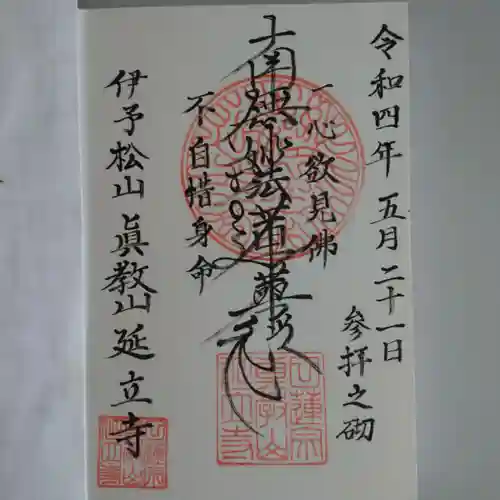 令和四年 五月二十一日
參拝之砌
一心欲見佛
南無妙法蓮華経
不自惜身命
伊予松山 眞教山 延立寺